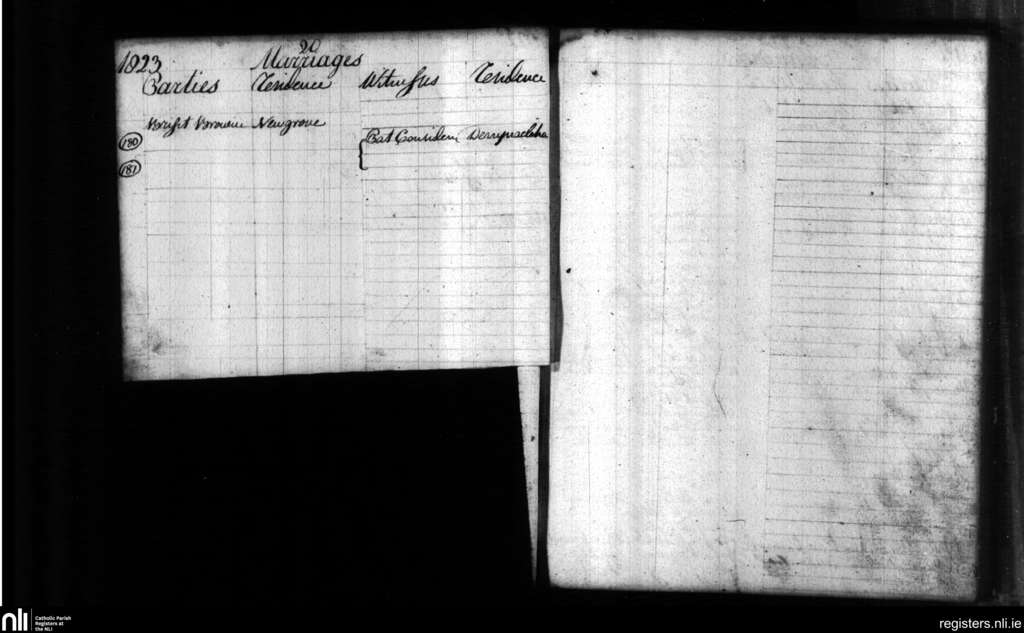 20
1823 Marriages
Parties Residence Witnesses Residence
Browne Newgrove
180 Pat Considen
181
nli Catholic Parish
Registers at
the NLI
registers.nli.ie